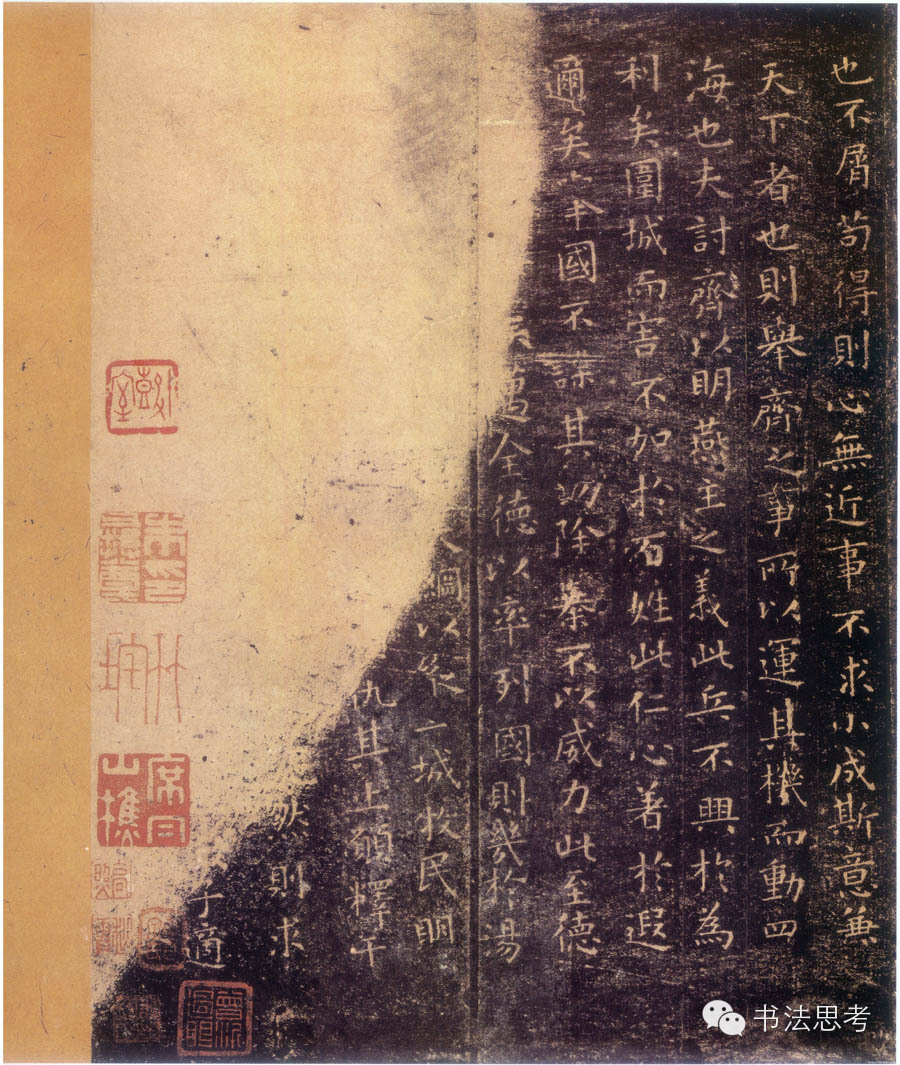 也不屑苟得則心無近事不求小成斯意無
天下者也則舉齊之事所以運其機而動四
海也夫討齊以明燕主之義此兵不興於為
利矣圍城而害不加於百姓此仁心著於遐
邇矣舉國不謀其功除暴不以威力此至德
邁全德以率列國則幾於湯
綱以縱二城牧民明
仇其上願釋干
然則求
子適
书法思考